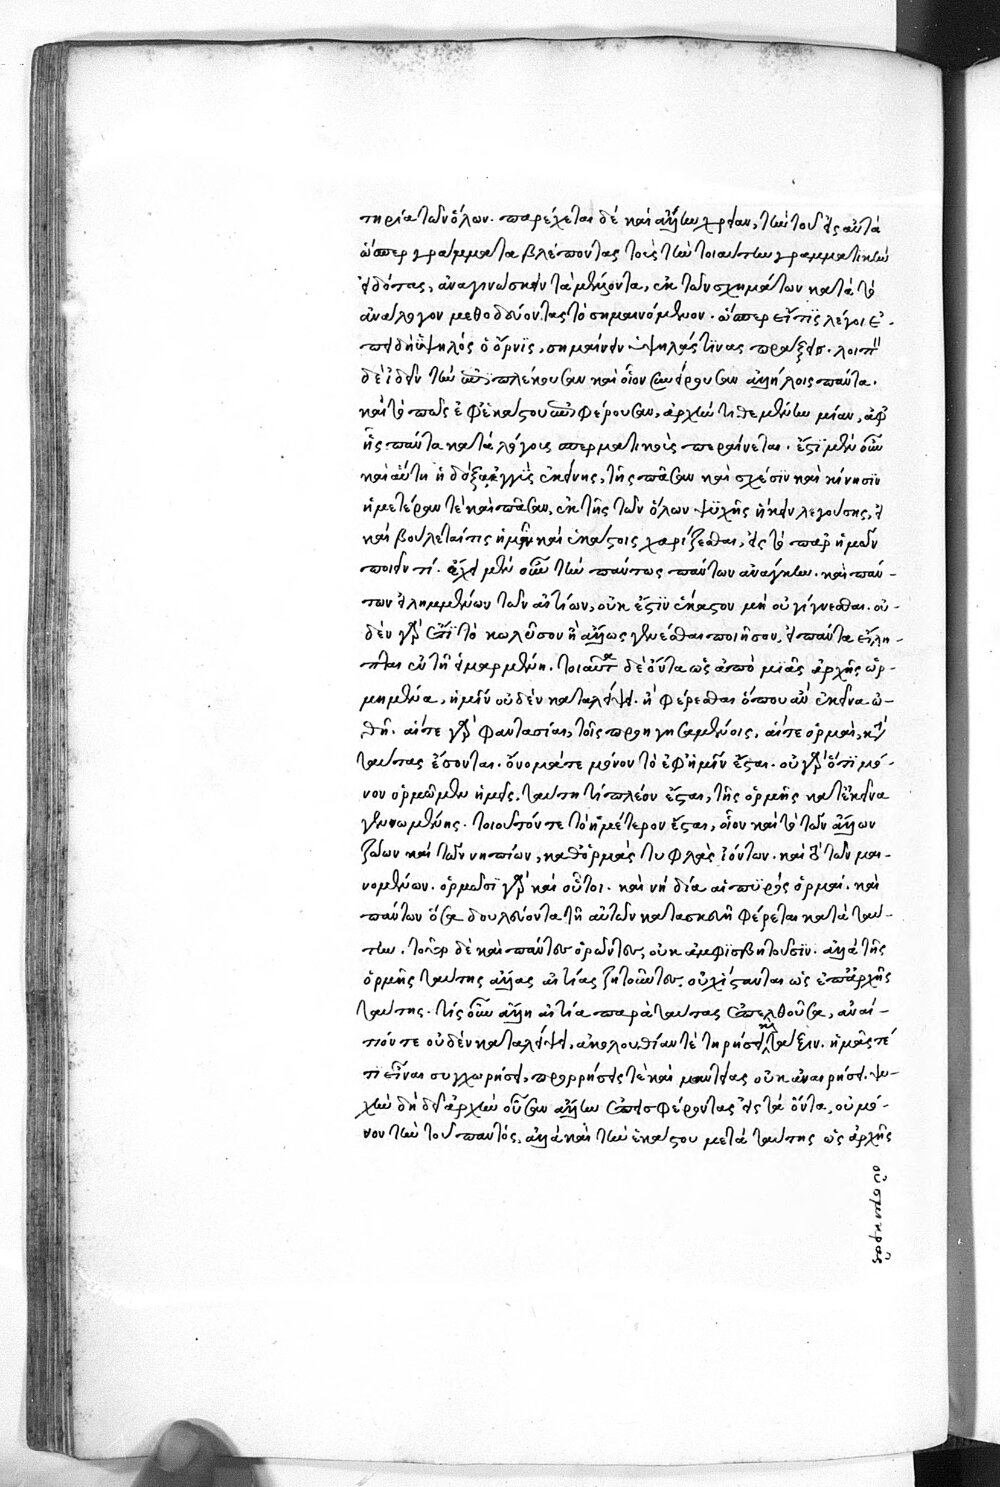 τηρία τῶν ὅλων. παρέχεται δὲ καὶ ἄλλην χρείαν, τὴν τοῦ εἰς αὐτὰ
ὥσπερ γράμματα βλέποντας τοὺς τὴν τοιαύτην γραμματικὴν
εἰδότας, ἀναγινώσκειν τὰ μέλλοντα, ἐκ τῶν σχημάτων κατὰ τὸ
ἀνάλογον μεθοδεύοντας τὸ σημαινόμενον. ὥσπερ εἴ τις λέγοι ἐ-
πειδὴ ὑψηλὸς ὁ ὄρνις, σημαίνειν ὑψηλάς τινας πράξεις. λοιπὸν
δὲ ἰδεῖν τὴν ἐπιπλέκουσαν καὶ οἷον συνείρουσαν ἀλλήλοις πάντα.
καὶ τὸ πῶς ἐφ' ἑκάστου ἐπιφέρουσαν, ἀρχὴν τιθεμένην μίαν, ἀφ'
ἧς πάντα κατὰ λόγους σπερματικοὺς περαίνεται. ἔστι μὲν οὖν
καὶ αὕτη ἡ δόξα ἐγγὺς ἐκείνης, τῆς πᾶσαν καὶ σχέσιν καὶ κίνησιν
ἡμετέραν τὲ καὶ πᾶσαν, ἐκ τῆς τῶν ὅλων ψυχῆς ἥκειν λεγούσης, εἰ
καὶ βούλεταί τις ἡμῖν καὶ ἑκάστοις χαρίζεσθαι, εἰς τὸ παρ' ἡμῶν
ποιεῖν τί. ἔχει μὲν οὖν τὴν πάντως πάντων ἀνάγκην. καὶ πάν-
των εἰλημμένων τῶν αἰτίων, οὐκ ἔστιν ἕκαστον μὴ οὐ γίγνεσθαι. οὐ-
δὲν γὰρ ἔτι τὸ κωλῦσον ἢ ἄλλως γενέσθαι ποιῆσον, εἰ πάντα εἴλη-
πται ἐν τῇ εἱμαρμένῃ. τοιαῦτα δὲ ὄντα ὡς ἀπὸ μιᾶς ἀρχῆς ὡρ-
μημένα, ἡμῖν οὐδὲν καταλείψει. ἢ φέρεσθαι ὅπου ἂν ἐκεῖνα ὠ-
θῇ. αἵ τε γὰρ φαντασίαι, τοῖς προηγησαμένοις, αἵ τε ὁρμαὶ, κατὰ
ταύτας ἔσονται. ὄνομά τε μόνον τὸ ἐφ' ἡμῖν ἔσται. οὐ γὰρ ὅτι μό-
νον ὁρμῶμεν ἡμεῖς, ταύτῃ τι πλέον ἔσται, τῆς ὁρμῆς κατ' ἐκεῖνα
γεννωμένης. τοιοῦτόν τε τὸ ἡμέτερον ἔσται, οἷον καὶ τὸ τῶν ἄλλων
ζώων καὶ τῶν νηπίων, καθ' ὁρμὰς τυφλὰς ἰόντων. καὶ τὸ τῶν μαι-
νομένων. ὁρμῶσι γὰρ καὶ οὗτοι. καὶ νὴ δία αἱ πυρὸς ὁρμαί. καὶ
πάντων ὅσα δουλεύοντα τῇ αὐτῶν κατασκευῇ φέρεται κατὰ ταύ-
την. τοῦτο δὲ καὶ πάντες ὁρῶντες, οὐκ ἀμφισβητοῦσιν. ἀλλὰ τῆς
ὁρμῆς ταύτης ἄλλας αἰτίας ζητοῦντες. οὐχ ἵστανται ὡς ἐπ' ἀρχῆς
ταύτης. τίς οὖν ἄλλη αἰτία παρὰ ταύτας ἐπελθοῦσα, ἀναί-
τιόν τε οὐδὲν καταλείψει, ἀκολουθίαν τὲ τηρήσει καὶ τάξιν. ἡμᾶς τέ
τι εἶναι συγχωρήσει, προρρήσεις τὲ καὶ μαντείας οὐκ ἀναιρήσει. ψυ-
χὴν δὴ δεῖ ἀρχὴν οὖσαν ἄλλην ἐπεισφέροντας εἰς τὰ ὄντα, οὐ μό-
νον τὴν τοῦ παντός, ἀλλὰ καὶ τὴν ἑκάστου μετὰ ταύτης ὡς ἀρχῆς
οὐ σμικρᾶς